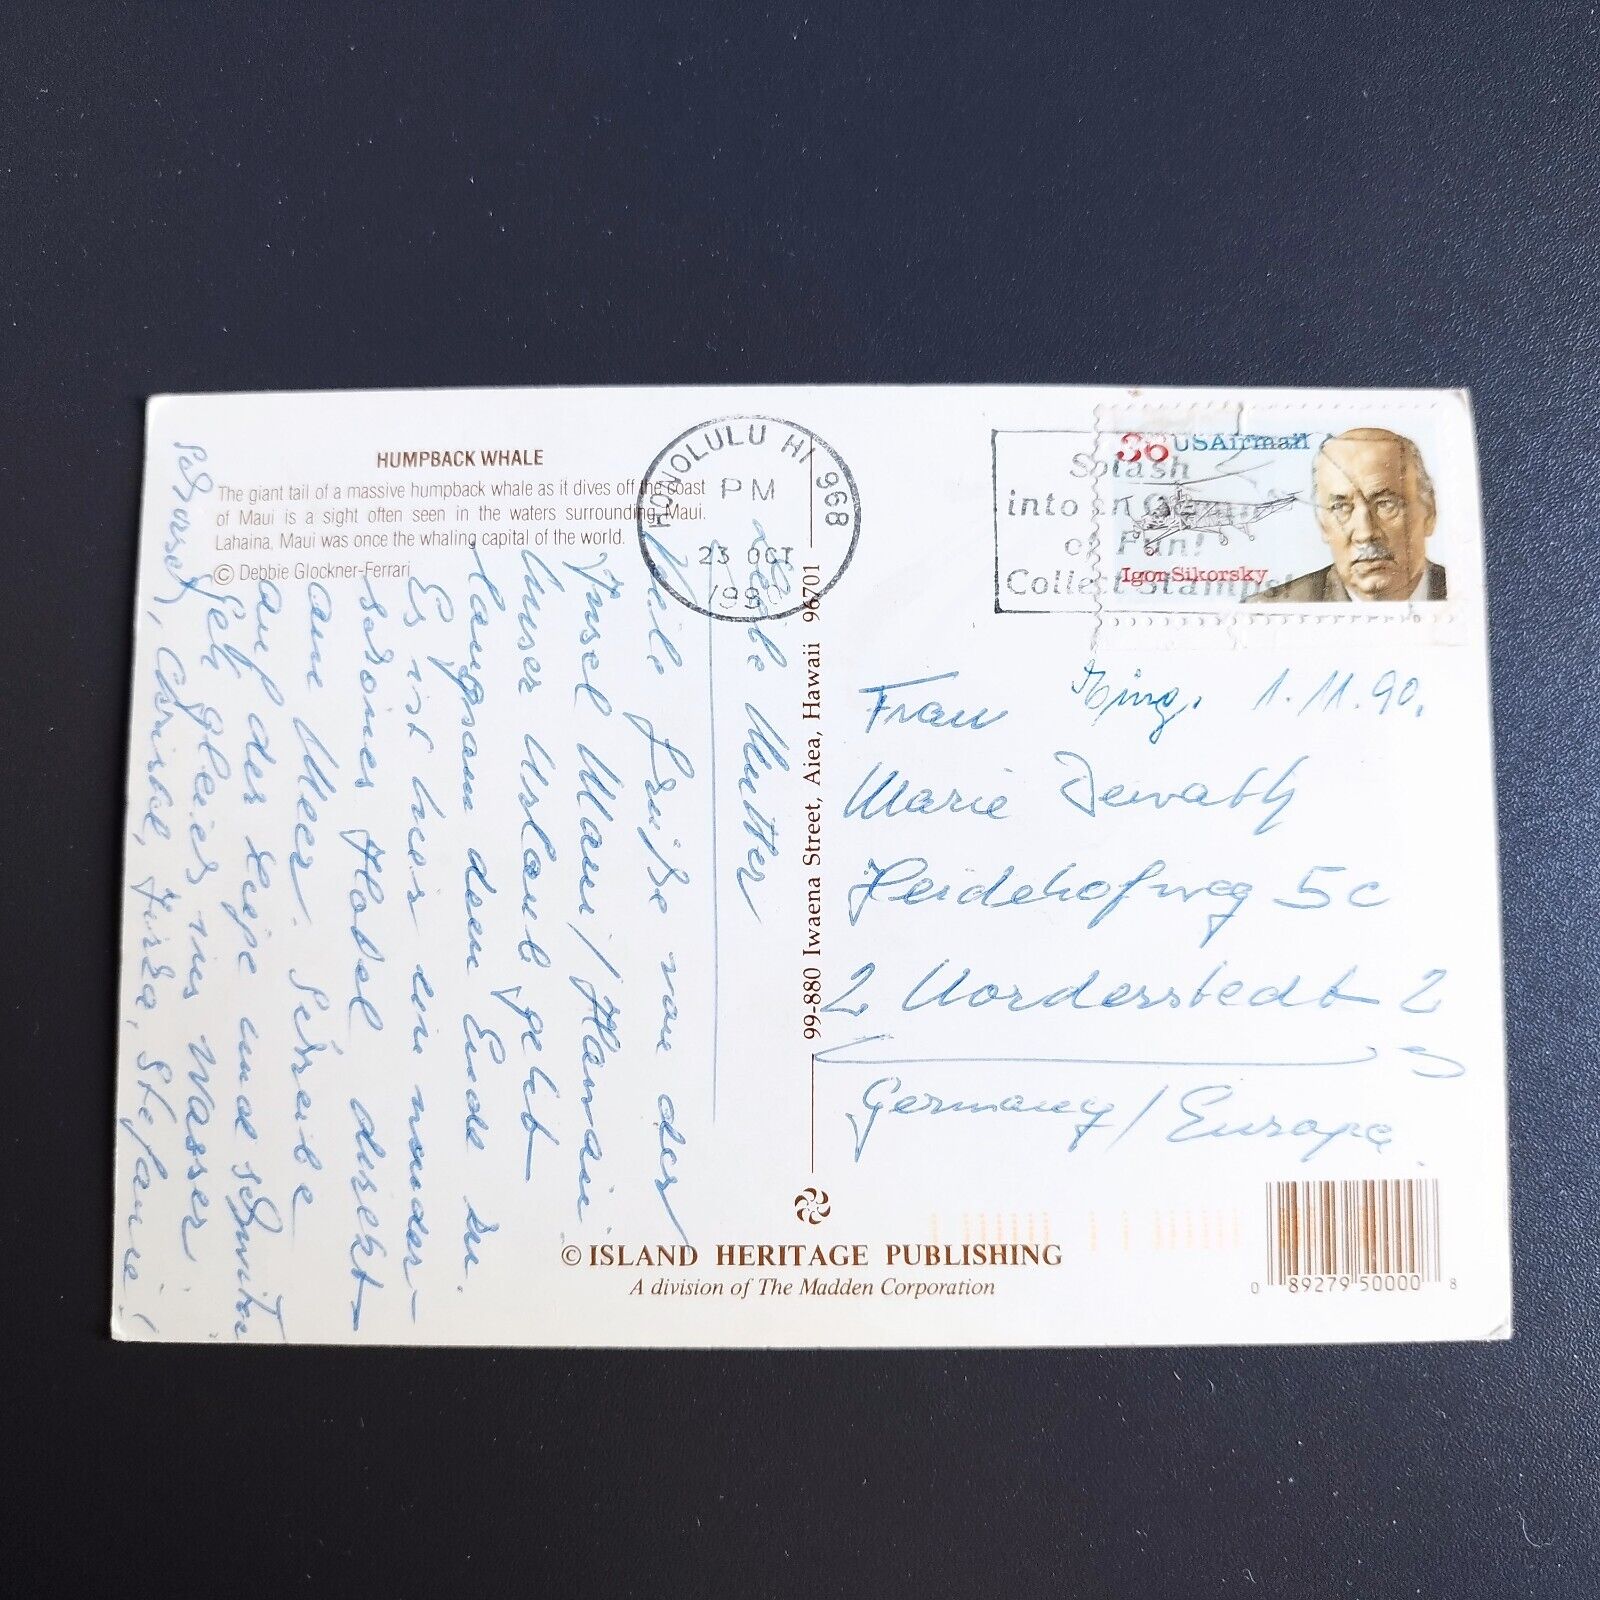 HUMPBACK WHALE
The giant tail of a massive humpback whale as it dives off the coast
of Maui is a sight often seen in the waters surrounding Maui.
Lahaina, Maui was once the whaling capital of the world.
© Debbie Glockner-Ferrari
HONOLULU HI 968
PM
23 OCT
1990
Splash
into an Ocean
of Fun!
Collect Stamps!
36 USAirmail
Igor Sikorsky
Liebe Mutter
Viele Grüße von der
Insel Maui / Hawaii
Unser Urlaub geht
langsam dem Ende zu.
Es ist hier ein wunder-
schönes Hotel direkt
am Meer. Schreibe
auf der Liege und schwitze
Geh gleich ins Wasser
Stefanie!
99-880 Iwaena Street, Aiea, Hawaii 96701
1.11.90.
Frau
Marie
Heidehofweg 5c
2 Norderstedt 2
Germany / Europa
© ISLAND HERITAGE PUBLISHING
A division of The Madden Corporation
0 89279 50000 8